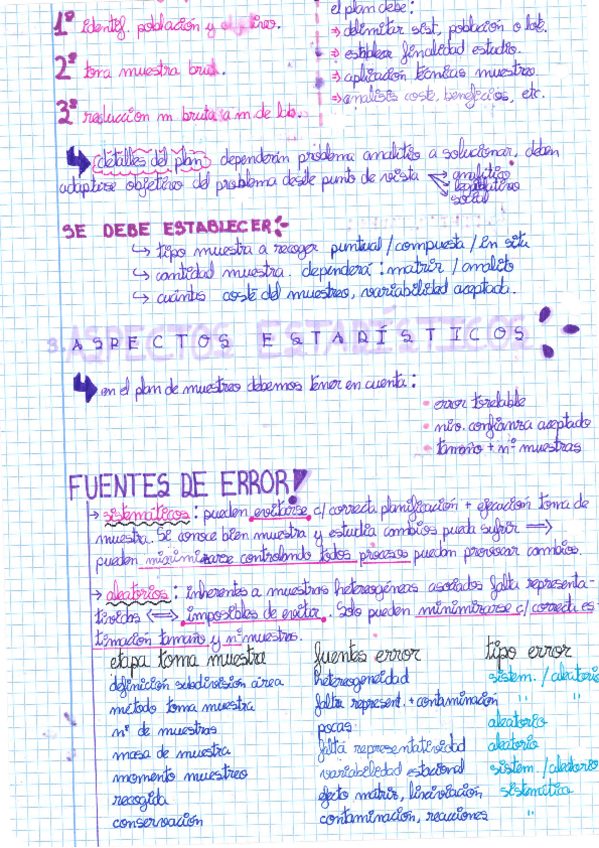 1º identif. población y objetivos.
2º toma muestra bruta.
3º reducción m. bruta a m. de lab.
el plan debe:
→ delimitar sist, población o lote.
→ establecer finalidad estudio.
→ aplicación técnicas muestreo.
→ analisis coste, beneficios, etc.
(detalles del plan) dependerán problema analítico a solucionar, deben
adaptarse objetivo del problema desde punto de vista
analítico
legislativo
social
SE DEBE ESTABLECER:
↳ tipo muestra a recoger puntual / compuesta / in situ
↳ cantidad muestra. dependerá: matriz / analito
↳ cuántos coste del muestreo, variabilidad aceptada.
3. ASPECTOS ESTADÍSTICOS
en el plan de muestreo debemos tener en cuenta:
• error tolerable
• niv. confianza aceptado
• tamaño + nº muestras
FUENTES DE ERROR!
→ sistemáticos: pueden evitarse c/ correcta planificación + ejecución toma de
muestra. Se conoce bien muestra y estudia cambios pueda sufrir ⇒
pueden minimizarse controlando todos procesos puedan provocar cambios.
→ aleatorios: inherentes a muestras heterogéneas asociados falta representa-
tividad ⟺ imposibles de evitar. Solo pueden minimizarse c/ correcta es-
timación tamaño y nº muestras.
etapa toma muestra fuentes error tipo error
definición subdivisión área heterogeneidad sistem. / aleatorio
método toma muestra falta represent. + contaminación " "
nº de muestras pocas aleatorio
masa de muestra falta representatividad aleatorio
momento muestreo variabilidad estacional sistem. / aleatorio
recogida efecto matriz, lixiviación sistemática
conservación contaminación, reacciones "